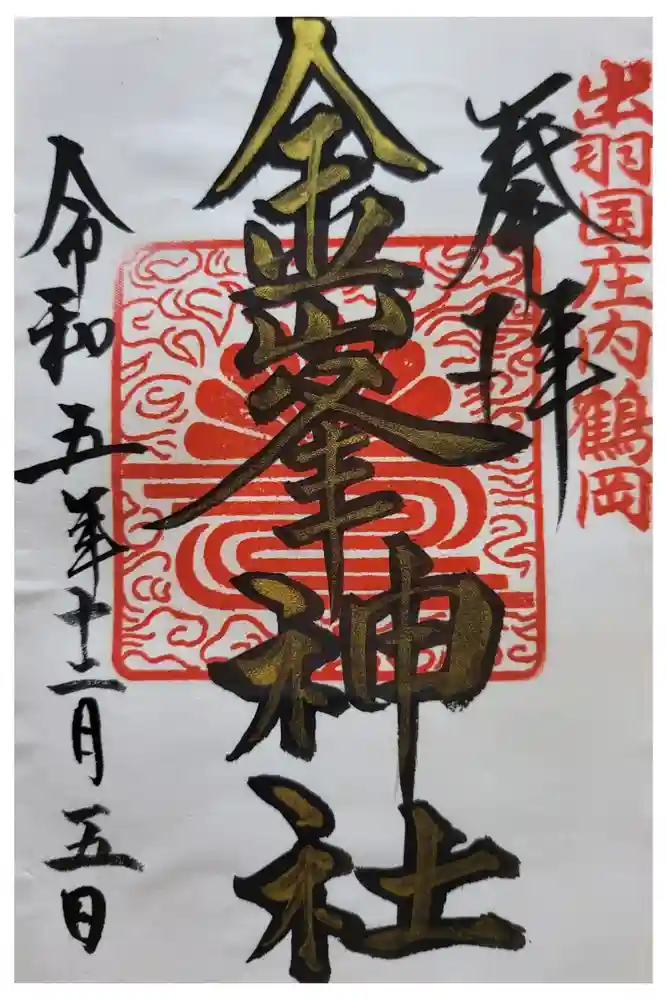 出羽国庄内鶴岡
奉拝
金峯神社
令和五年十二月五日